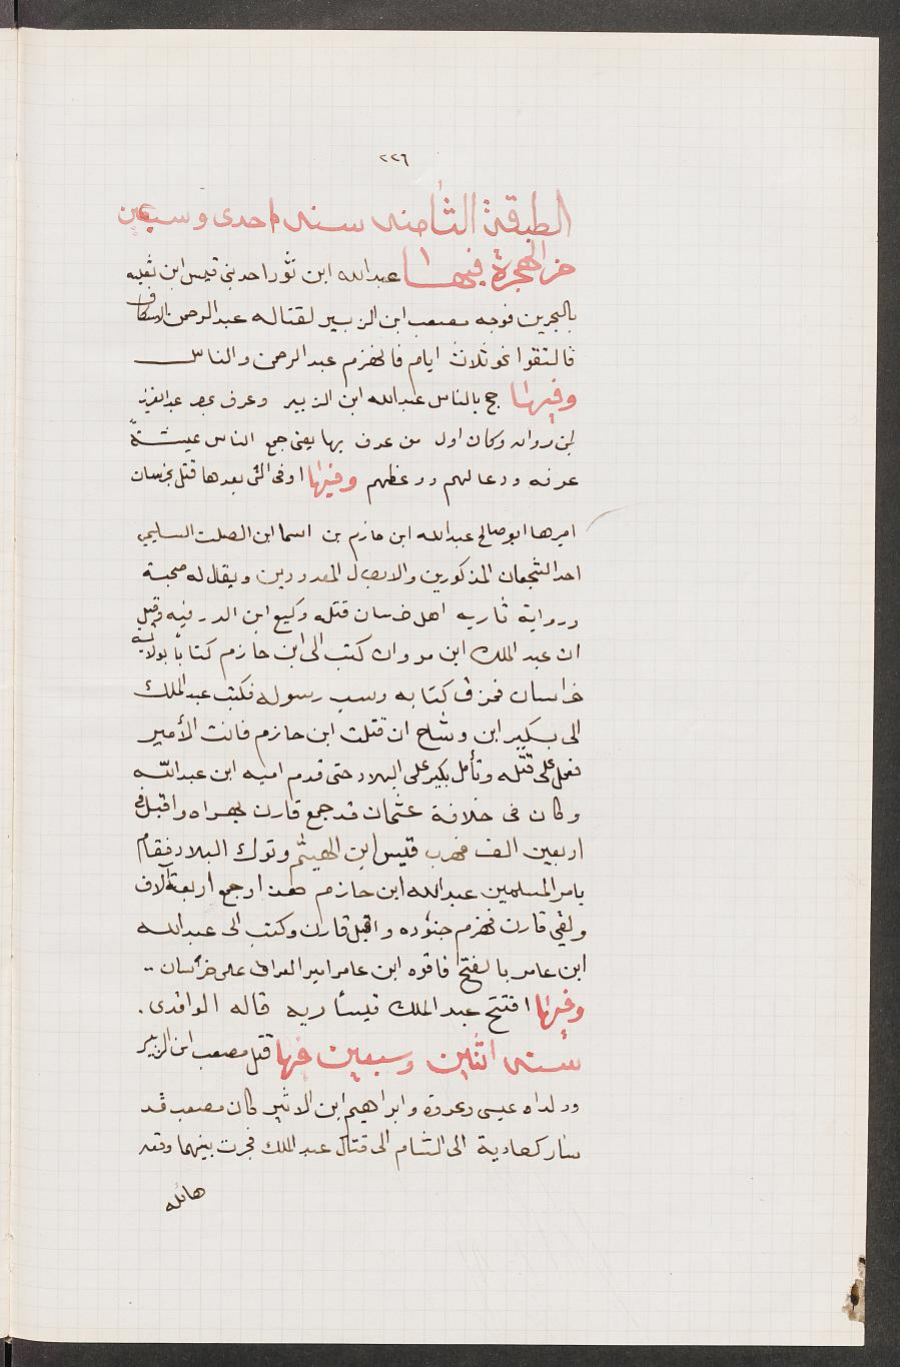 ٢٢٦
الطبقة الثامنه سنه احدى وسبعين
من الهجرة فيها عبدالله ابن ثور احد بني قيس ابن ثعلبه
بالبحرين فوجه مصعب ابن الزبير لقتاله عبد الرحمن الاسكاف
فالتقوا نحو ثلاث ايام فانهزم عبد الرحمن والناس
وفيها حج بالناس عبدالله ابن الزبير وعرف بمصر عبدالعزيز
ابن مروان وكان اول من عرف بها يعني جمع الناس عيشة
عرفه ودعا لهم ووعظهم وفيها اوفى التي بعدها قتل بخرسان
اميرها ابو صالح عبدالله ابن حازم بن اسما ابن الصلت السليمي
احد الشجعان المذكورين والابطال المعدودين ويقال له صحبة
ورواية ثار به اهل خرسان قتله وكيع ابن الدورقيه وقيل
ان عبد الملك ابن مروان كتب الى ابن حازم كتابا بولاية
خراسان فمزق كتابه وسب رسوله فكتب عبد الملك
الى بكير ابن وشاح ان قتلت ابن حازم فانت الأمير
فعمل على قتله وتأمل بكير على البلاد حتى قدم اميه ابن عبدالله
وكان في خلافة عثمان قد جمع قارن بهراه واقبل في
اربعين الف فهرب قيس ابن الهيثم وترك البلاد فقام
بامر المسلمين عبدالله ابن حازم اربعة آلاف
ولقي قارن فهزم جنوده واقتل قارن وكتب الى عبدالله
ابن عامر بالفتح فاقره ابن عامر امير العراق على خراسان ..
وفيها افتتح عبد الملك قيسأريه قاله الواقدى .
سنه اثنين وسبعين فيها قتل مصعب ابن الزبير
وولداه عيسى وعروة وابراهيم ابن الاثير كان مصعب قد
سار كعادية الى الشام الى قتال عبد الملك فجرت بينهما وقعه
هائله